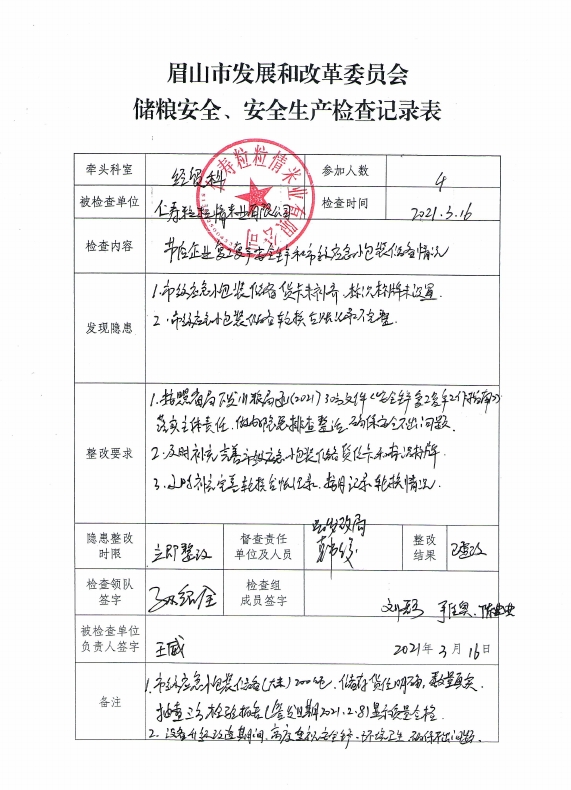 眉山市发展和改革委员会
储粮安全、安全生产检查记录表
牵头科室 经贸科 参加人数 4
被检查单位 仁寿粒粒情米业有限公司 检查时间 2021.3.16
检查内容 节后企业复工复产安全生产和市级应急小包装储备情况
发现隐患
1.市级应急小包装储备货卡未补齐,标识标牌未设置.
2.市级应急小包装储备轮换台账记录不完整.
整改要求
1.按照省局下发川粮局函(2021)30号文件《安全生产复工复产工作指南》
落实主体责任,做好隐患排查整治,确保安全不出问题.
2.及时补充完善市级应急小包装储备货位卡和标识标牌
3.及时补充完善轮换台帐记录、按月记录轮换情况.
隐患整改时限 立即整改 督查责任单位及人员 县发改局 整改结果 已整改
检查领队签字 检查组成员签字 刘
被检查单位负责人签字 王威 2021年3月16日
备注
1.市级应急小包装储备(大米)200吨、储存货位明确,数量真实.
抽查三份检验报告(签发日期2021.2.8)显示质量合格.
2.设备升级改造期间,高度重视安全生产、环境卫生 确保不出问题.
仁寿粒粒情米业有限公司